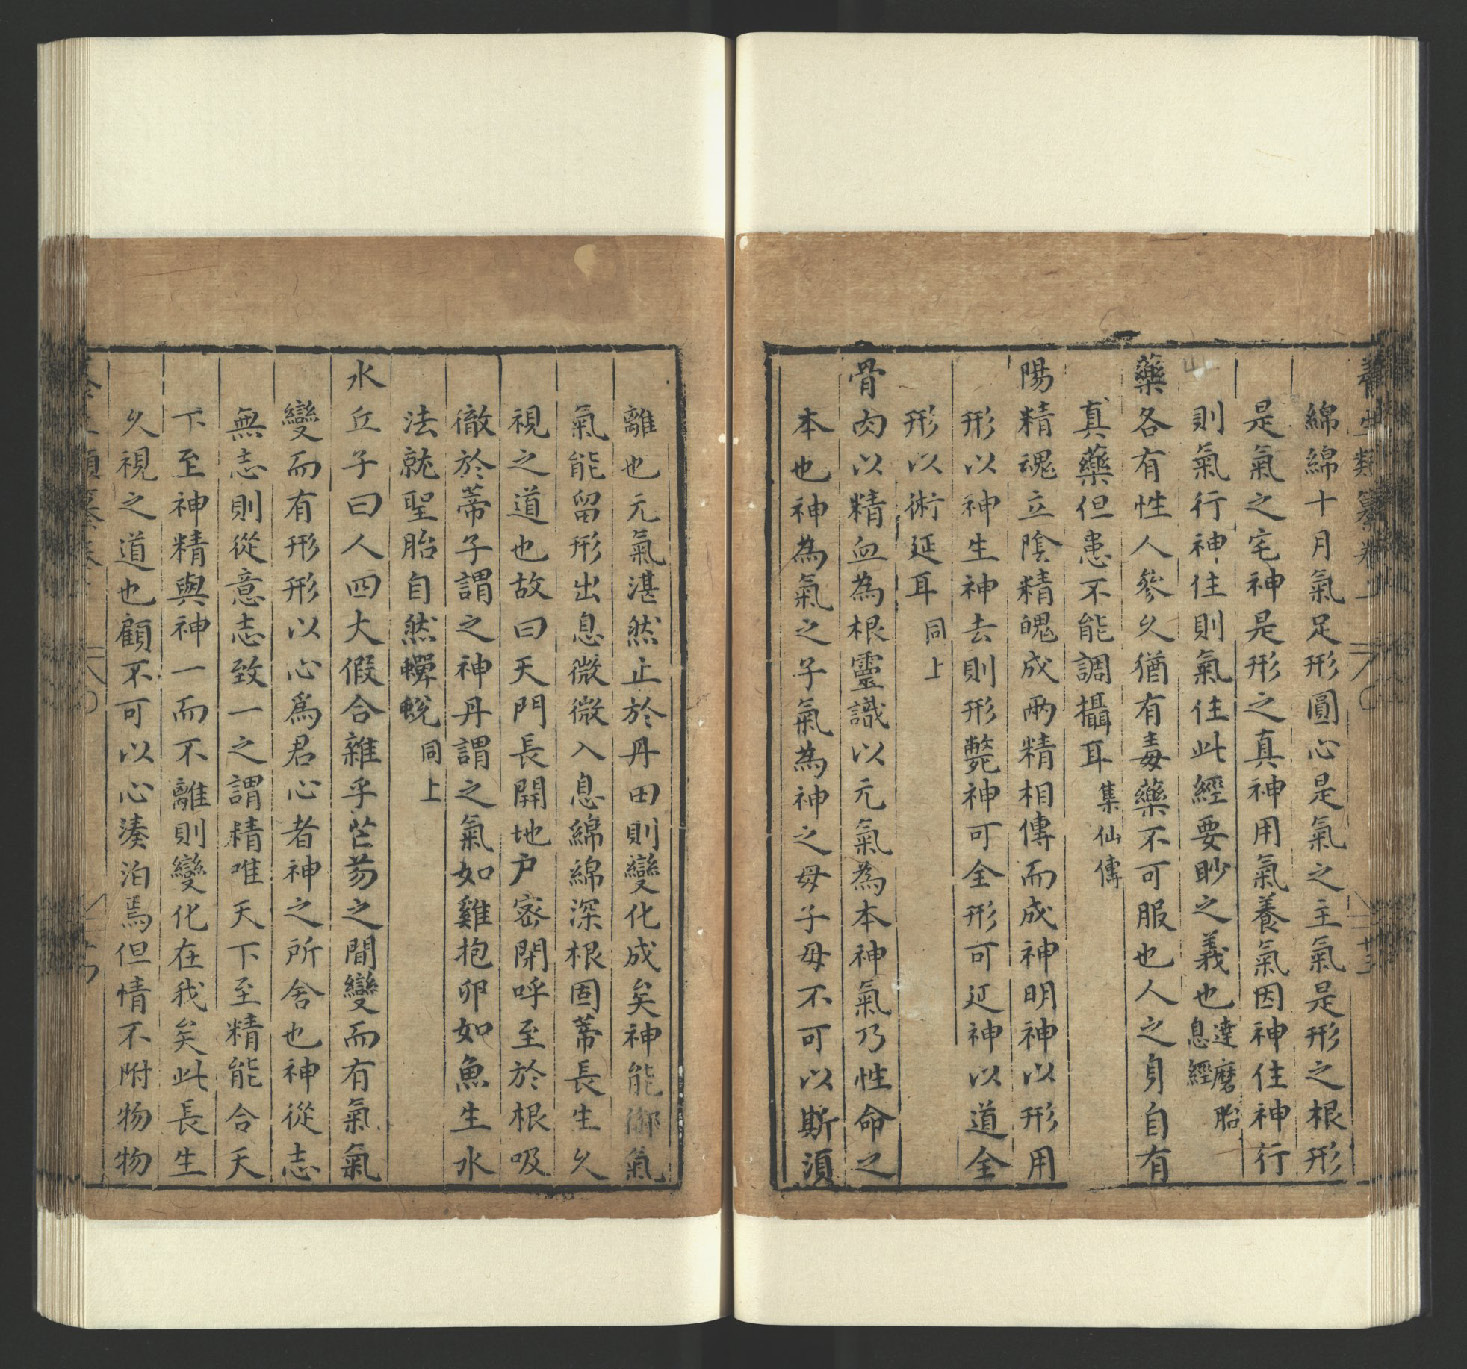 綿綿十月氣足形圓心是氣之主氣是形之根形
是氣之宅神是形之真神用氣養氣因神住神行
則氣行神住則氣住此經要眇之義也達磨胎息經
藥各有性人參久猶有毒藥不可服也人之身自有
真藥但患不能調攝耳集仙傳
陽精魂立陰精魄成兩精相傳而成神明神以形用
形以神生神去則形斃神可全形可延神以道全
形以術延耳同上
骨肉以精血為根靈識以元氣為本神氣乃性命之
本也神為氣之子氣為神之母子母不可以斯須
離也元氣湛然止於丹田則變化成矣神能御氣
氣能留形出息微微入息綿綿深根固蒂長生久
視之道也故曰天門長開地户密閉呼至於根吸
徹於蒂子謂之神丹謂之氣如雞抱卵如魚生水
法就聖胎自然蟬蛻同上
水丘子曰人四大假合雜乎芒芴之間變而有氣氣
變而有形形以心爲君心者神之所舍也神從志
無志則從意志致一之謂精唯天下至精能合天
下至神精與神一而不離則變化在我矣此長生
久視之道也顧不可以心湊泊焉但情不附物物